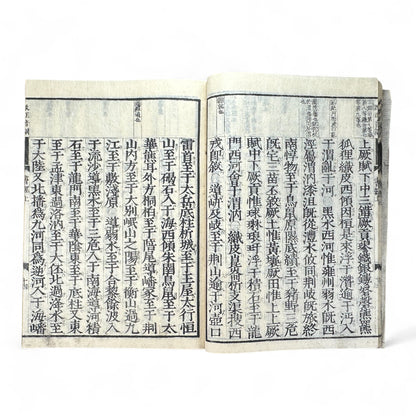 上厥賦下中三錯厥貢璆鐵銀鏤砮磬熊羆
狐狸織皮西傾因桓是來浮于潛逾于沔入
于渭亂于河 黑水西河惟雍州弱水既西
涇屬渭汭漆沮既從灃水攸同荆岐既旅終
南惇物至于鳥鼠原隰厎績至于豬野三危
既宅三苗丕敘厥土惟黃壤厥田惟上上厥
賦中下厥貢惟球琳琅玕浮于積石至于龍
門西河會于渭汭織皮崐崘析支渠搜西
戎即敘 導岍及岐至于荆山逾于河壺口
雷首至于太岳厎柱析城至于王屋太行恒
山至于碣石入于海西傾朱圉鳥鼠至于太
華熊耳外方桐柏至于陪尾導嶓冢至于荆
山內方至于大別岷山之陽至于衡山過九
江至于敷淺原 導弱水至于合黎餘波入
于流沙導黑水至于三危入于南海導河積
石至于龍門南至于華陰東至于厎柱又東
至于孟津東過洛汭至于大伾北過洚水至
于大陸又北播為九河同為逆河入于海嶓